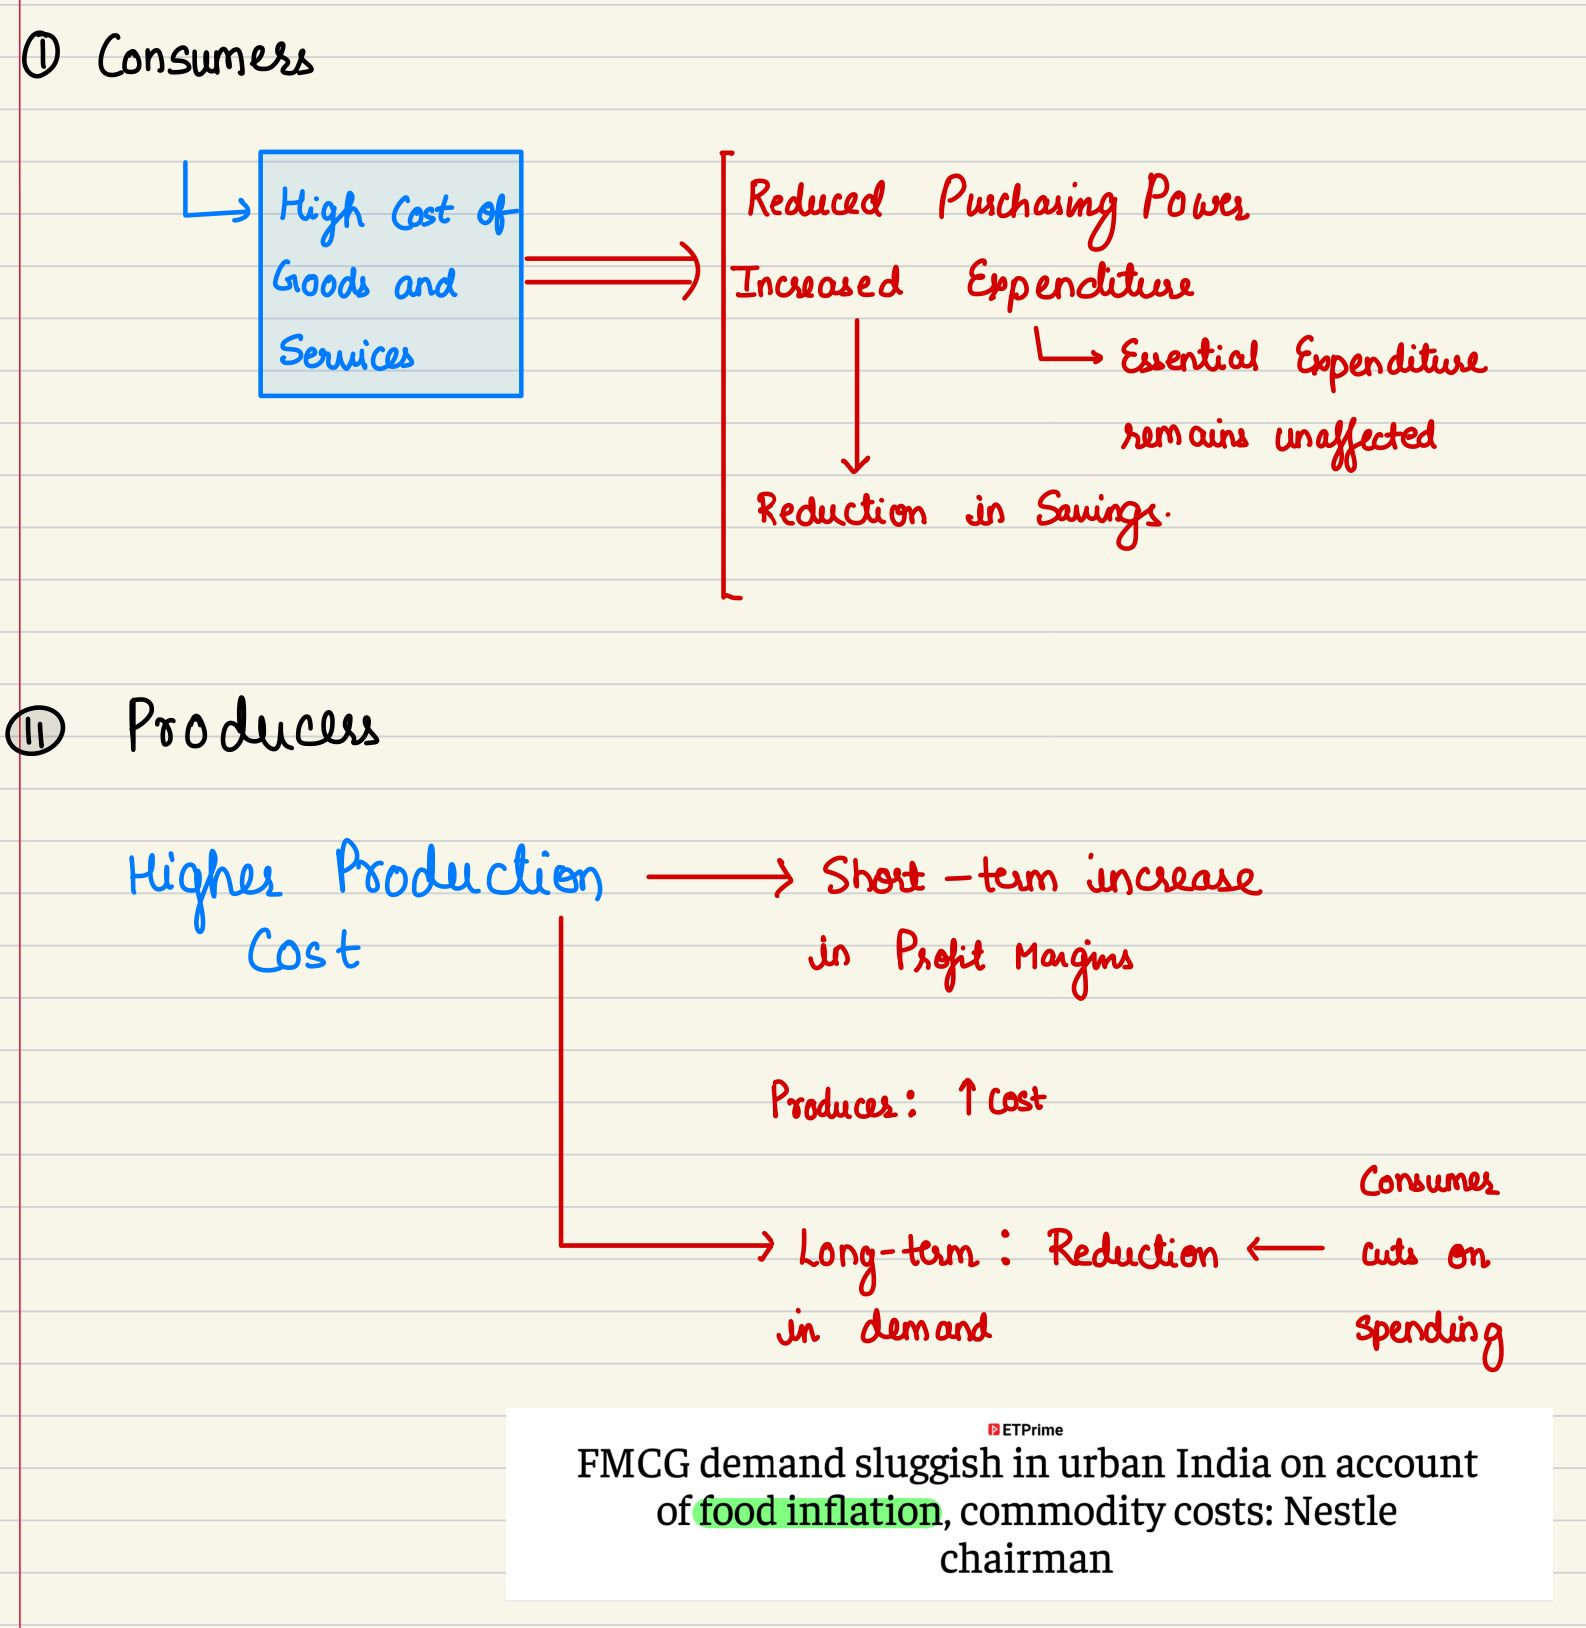 ① Consumers
High Cost of
Goods and
Services
Reduced Purchasing Power
Increased Expenditure
Essential Expenditure
remains unaffected
Reduction in Savings.
⑪ Producers
Higher Production
Cost
Short-term increase
in Profit Margins
Producer: ↑ Cost
Consumer
cuts on
spending
Long-term: Reduction
in demand
ETPrime
FMCG demand sluggish in urban India on account
of food inflation, commodity costs: Nestle
chairman